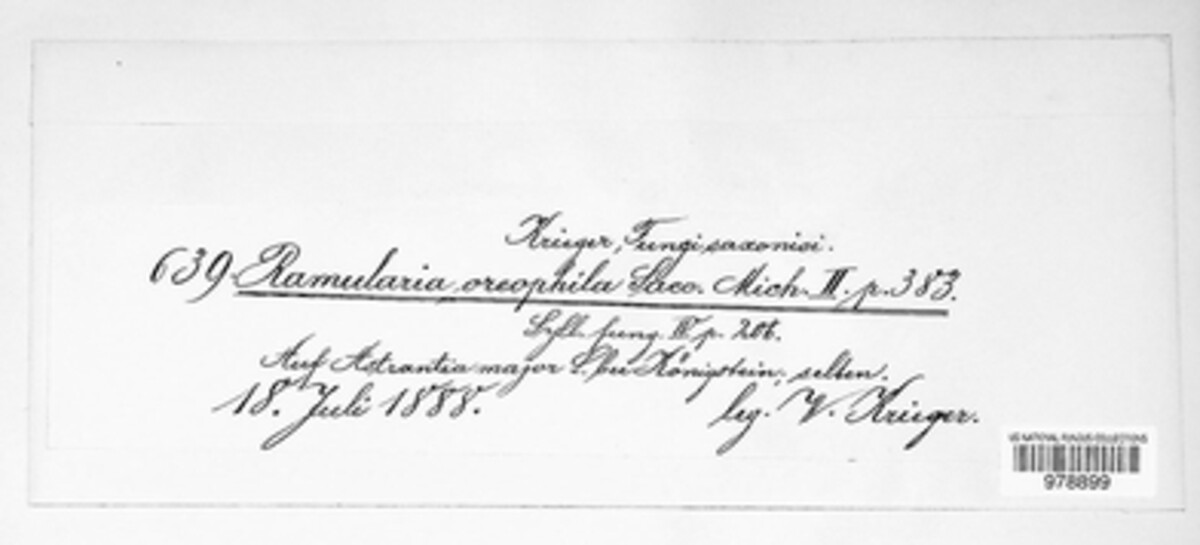 Krieger, Fungi saxonici.
639. Ramularia oreophila Sacc. Mich. II. p. 383.
Syll. fung. IV p. 206.
Auf Astrantia major L. bei Königstein, selten.
18. Juli 1888. leg. W. Krieger.
US NATIONAL FUNGUS COLLECTIONS
978899